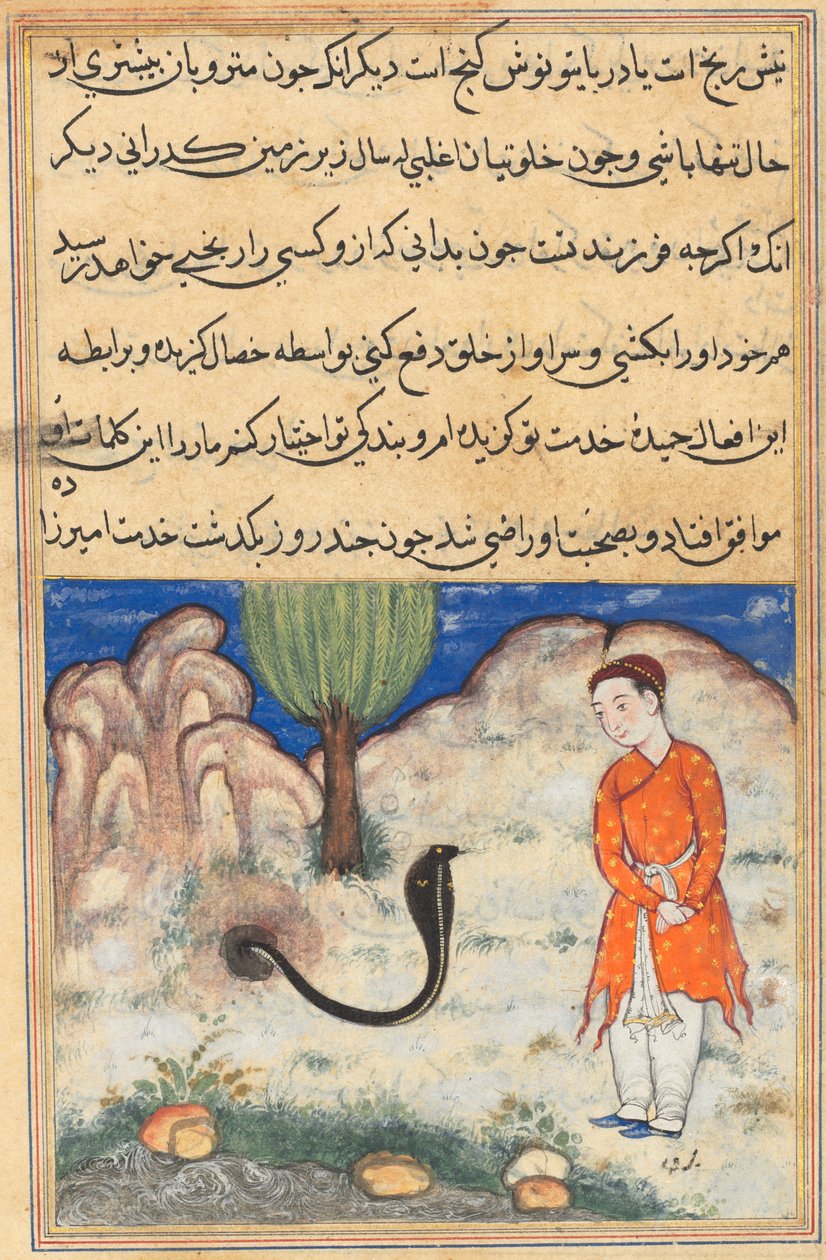 نیش رنج است یا در پایتو نوش کنج است دیکر انک جون متروبان بیشتری از
حال تنها باشی و جون خلوتیان اغلبی له سال زیر زمین کدرانی دیکر
انک اکر جه فرزند تست جون بدانی که ازو کسی را رنجی خواهد رسید
هم خود او را بکشی و سر او از خلق دفع کنی بواسطه خصال کزیده و برابطه
این افعال حمیده خدمت تو کزیده ام و بندکی تو اختیار کنم مار را این کلمات او
موافق افتاد و بصحبت او راضی شد جون جند روز بکذشت خدمت امیرزاده